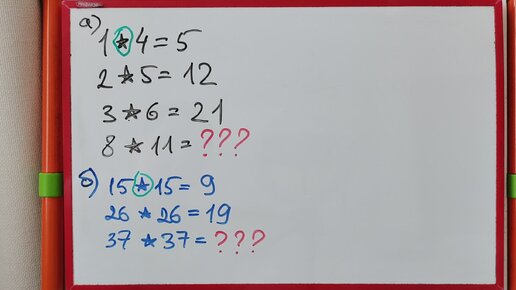 а) 1 ★ 4 = 5
2 ★ 5 = 12
3 ★ 6 = 21
8 ★ 11 = ???
б) 15 ★ 15 = 9
26 ★ 26 = 19
37 ★ 37 = ???